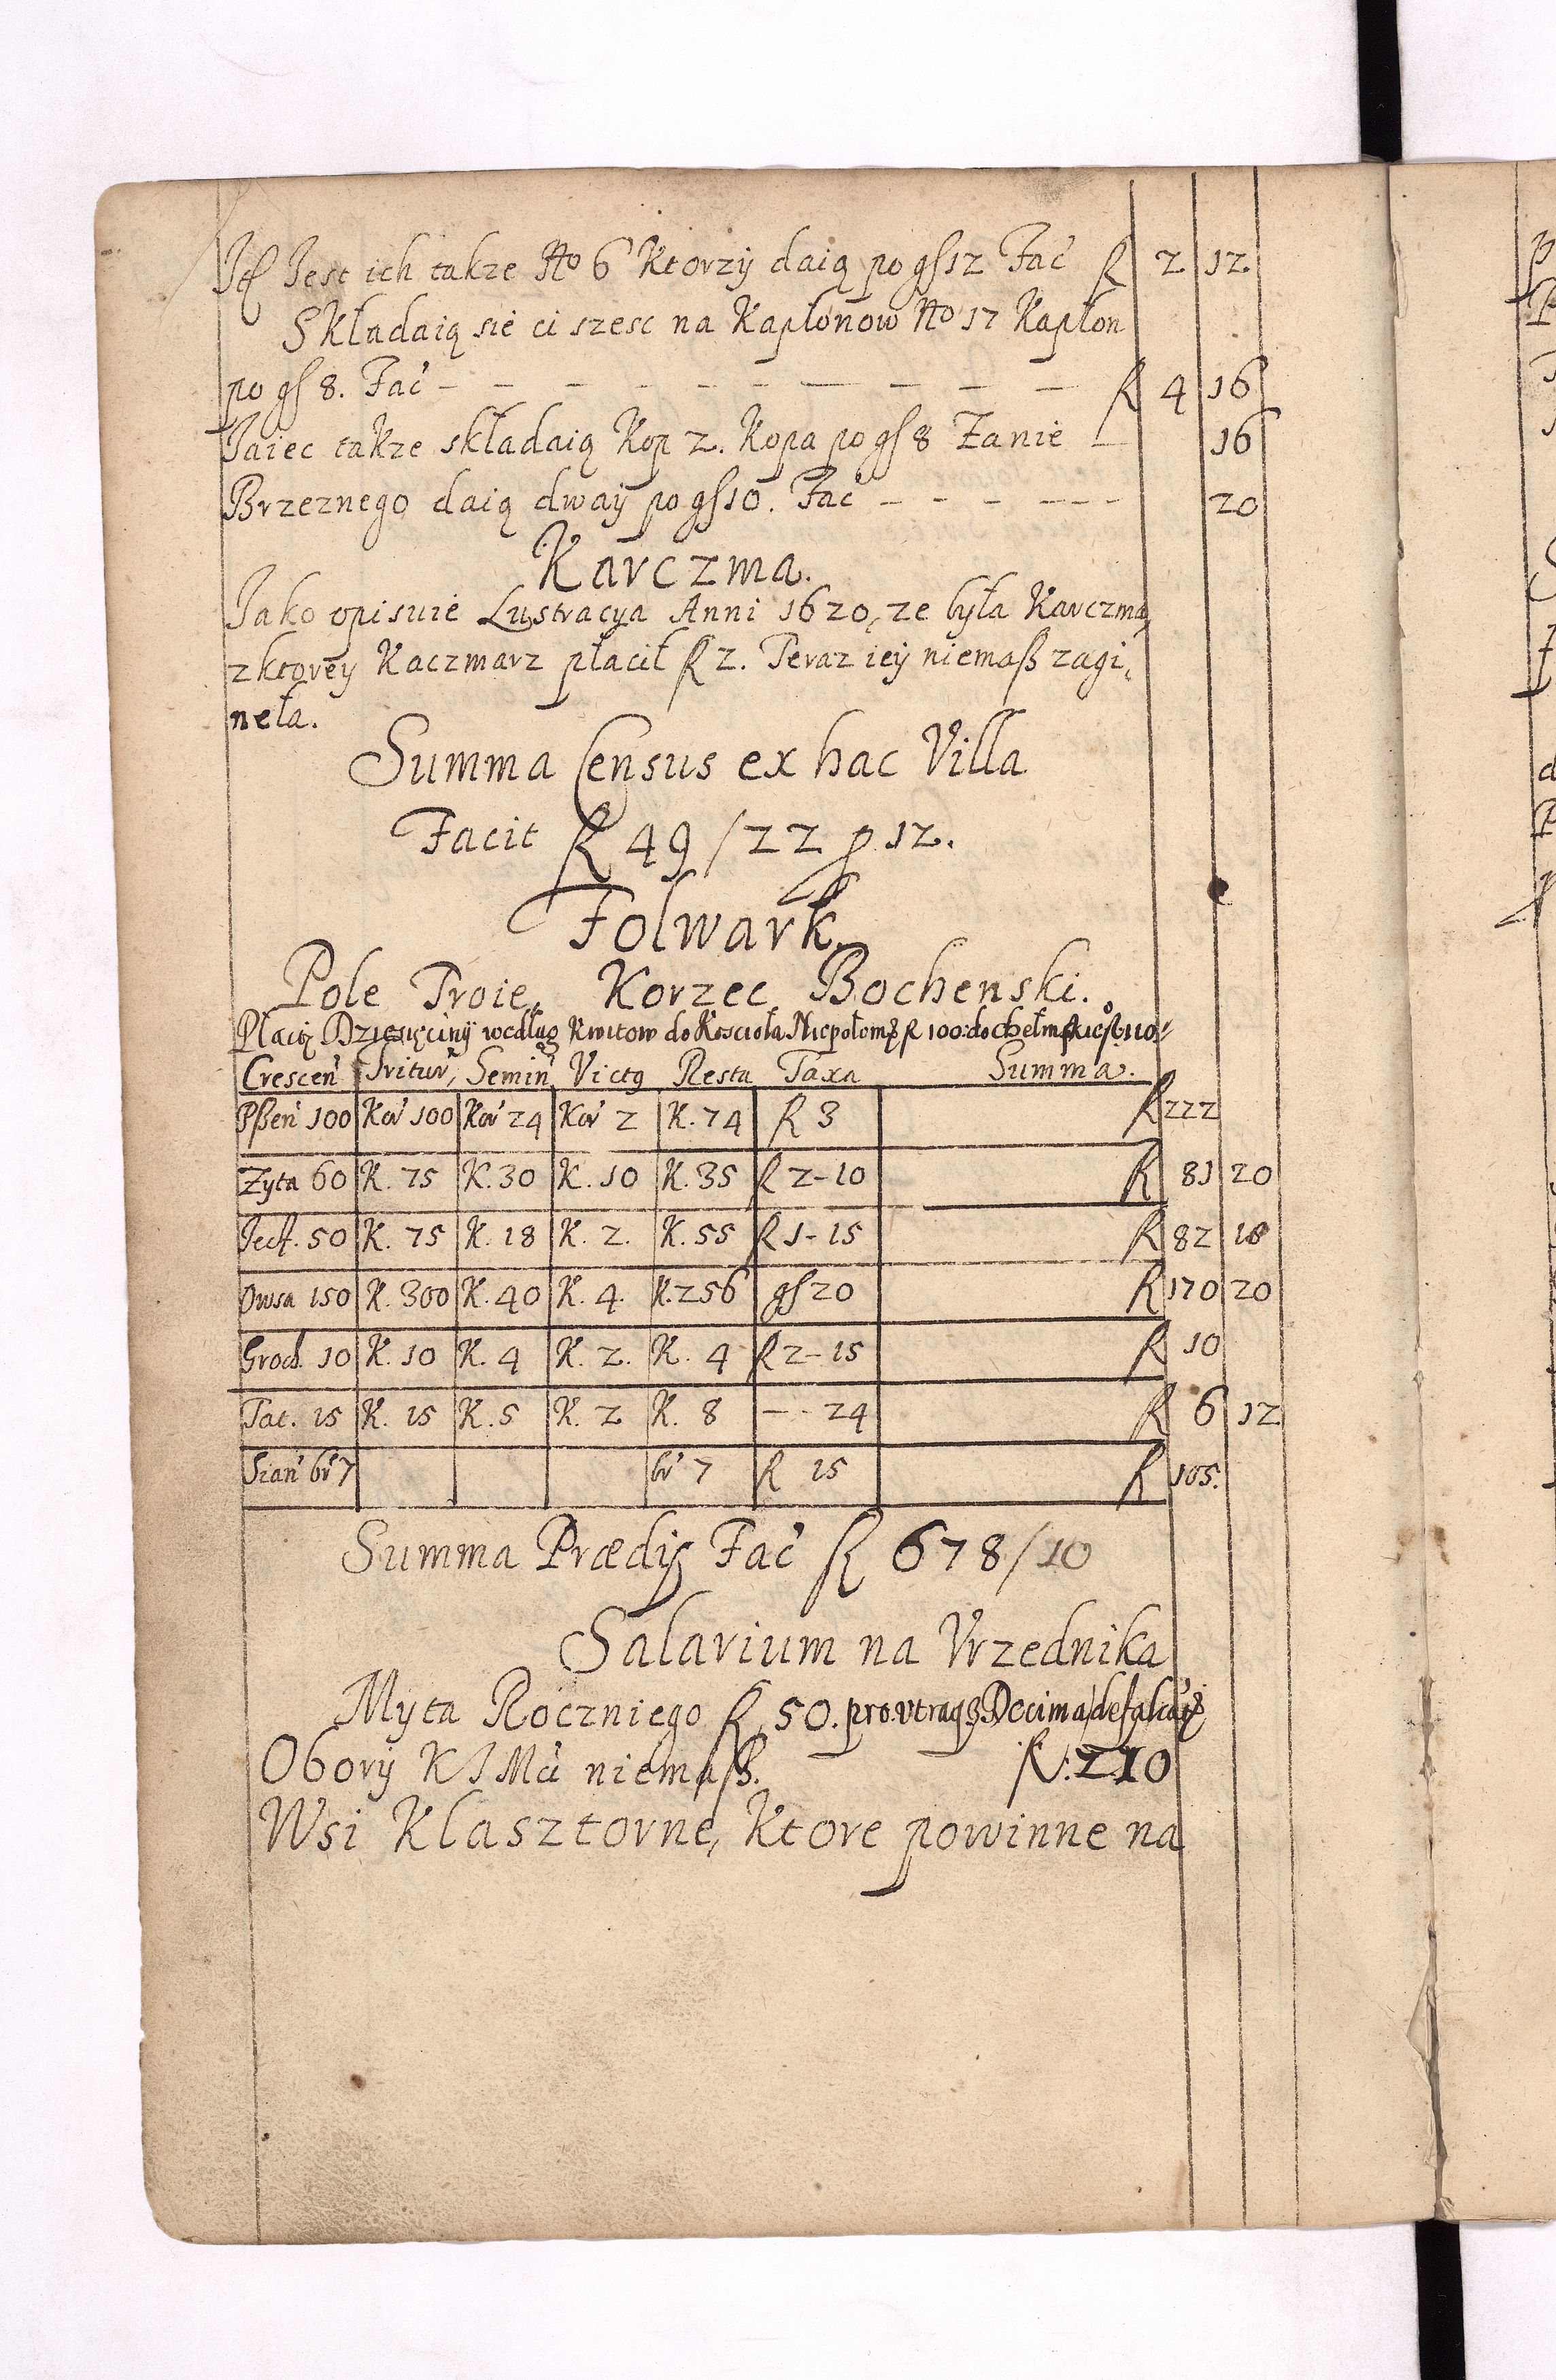 It. Iest ich takze No 6 Ktorzÿ daią po gſ 12 Fac̃ R 2 12.
Składaią sie ci szesc na Kapłonow No 17 Kapłon
po gſ 8. Fac̃ — — — — — — — — — R 4 16
Iaiec takze składaią Kop 2. Kopa po gſ 8 Za nie 16
Brzeznego daią dwaÿ po gſ 10. Fac̃ — — — — — 20
Karczma.
Iako opisuie Lustracya Anni 1620, ze była Karczma,
z ktorey Kaczmarz płacił R 2. Teraz ieÿ niemaß zagi,
neła.
Summa Census ex hac Villa
Facit R 49/22 p 12.
Folwark.
Pole Troie, Korzec Bochenski.
Płacię Dziesięcinÿ według kwitow do Koscioła Niepołomę R 100: do
Crescen̄ Tritur̄, Semin̄ Victg Resta Taxa Summa.
Pßen̄ 100 Kor̄ 100 Kor̄ 24 Kor̄ 2 K. 74 R 3 R 222
Zyta 60 K. 75 K. 30 K. 10 K. 35 R 2-10 R 81 20
Ięcz. 50 K. 75 K. 18 K. 2. K. 55 R 1-15 R 82 10
Owsa 150 K. 300 K. 40 K. 4. K. 256 gſ 20 R 170 20
Groch. 10 K. 10 K. 4 K. 2. K. 4 R 2-15 R 10
Tat. 15 K. 15 K. 5 K. 2 K. 8 — - 24 R 6 12
Sian̄ br̄ 7 br̄ 7 R 15 R 105.
Summa Prædiÿ Fac̃ R 678/10
Salarium na Vrzednika
Myta Roczniego R 50. pro utraqȝ Decima
Oborÿ K J Mci niemaß. R: 210
Wsi Klasztorne, Ktore powinne na